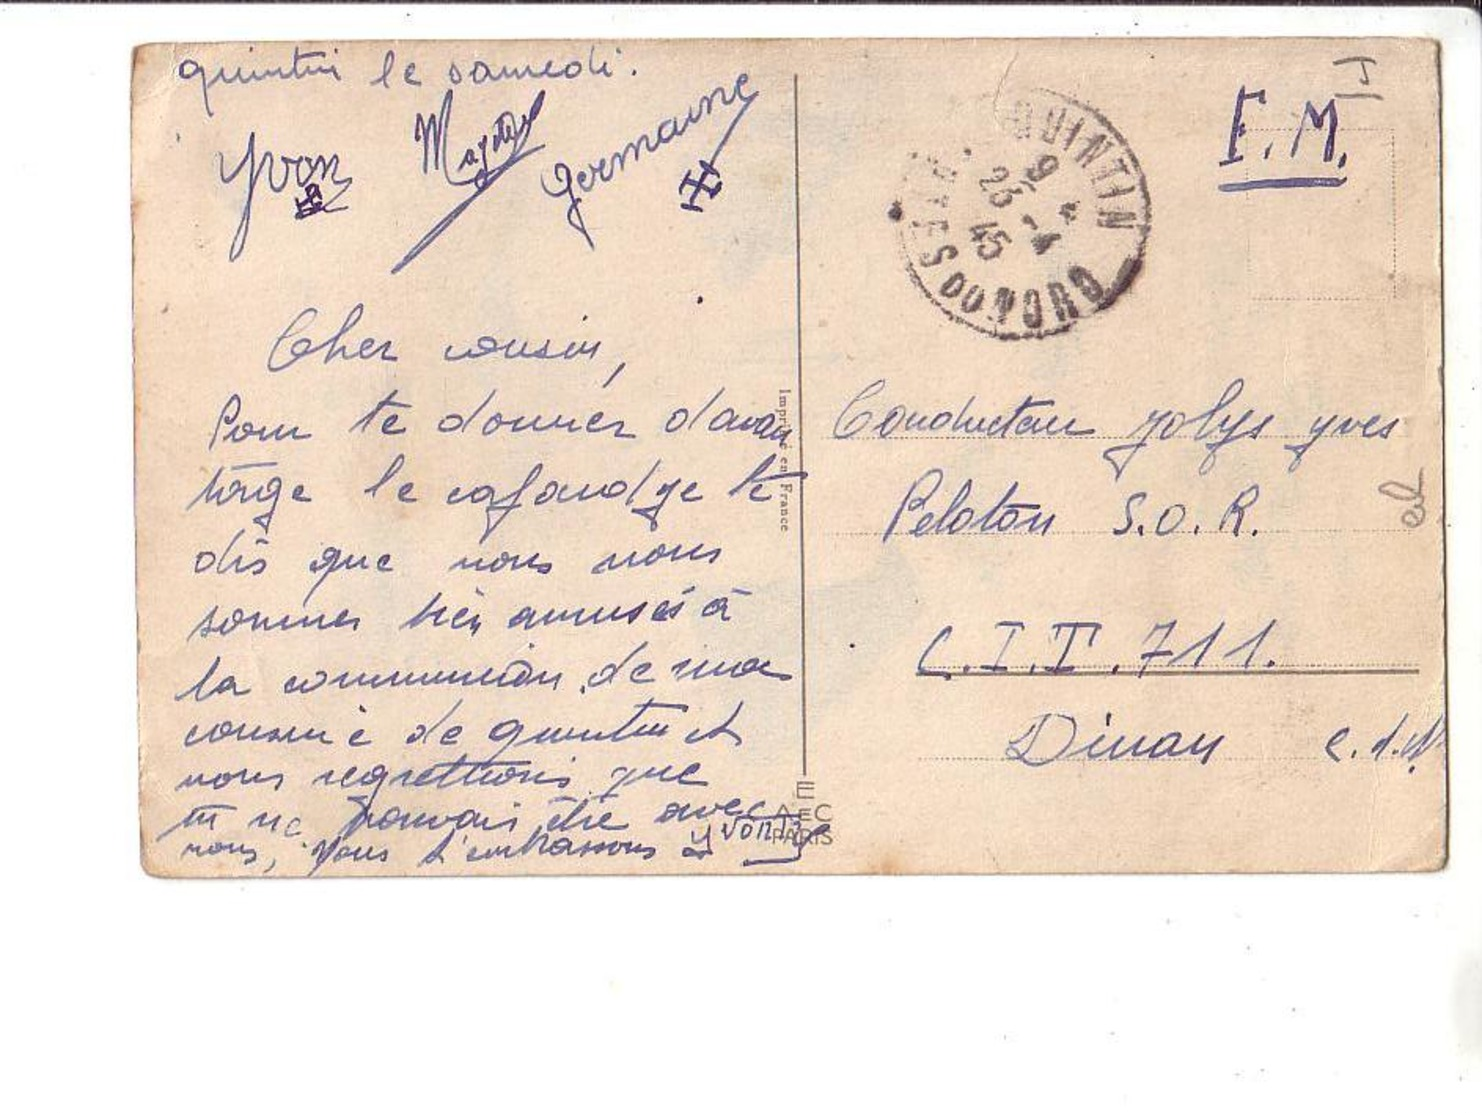 quintin le samedi.
Yvon Germaine
Cher cousin,
Pour te donner davan
tage le cafard je te
dis que nous nous
sommes bien amusés à
la communion de ma
cousine de quintin et
nous regrettions que
tu ne pouvais être avec
nous, Nous t'embrassons
yvonne
Imprimé en France
E
A EC
PARIS
F.M.
QUINTIN
9 *
25 -4
45
COTES DU NORD
Conducteur Jolys yves
Peloton S.O.R.
C.I.T. 711.
Dinan C.d.N